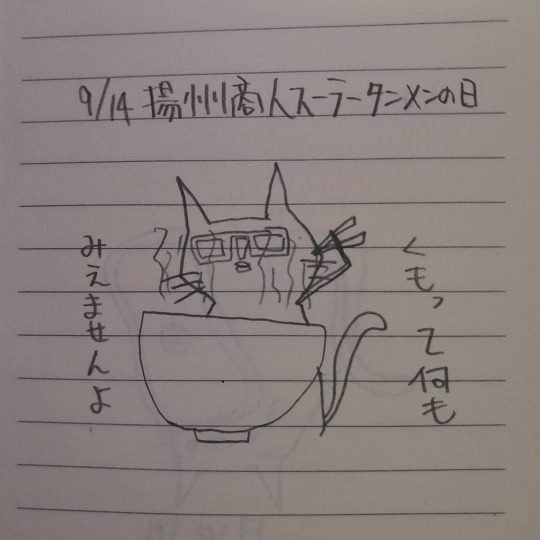 9/14 揚州商人スーラータンメンの日
くもって何も
みえませんよ